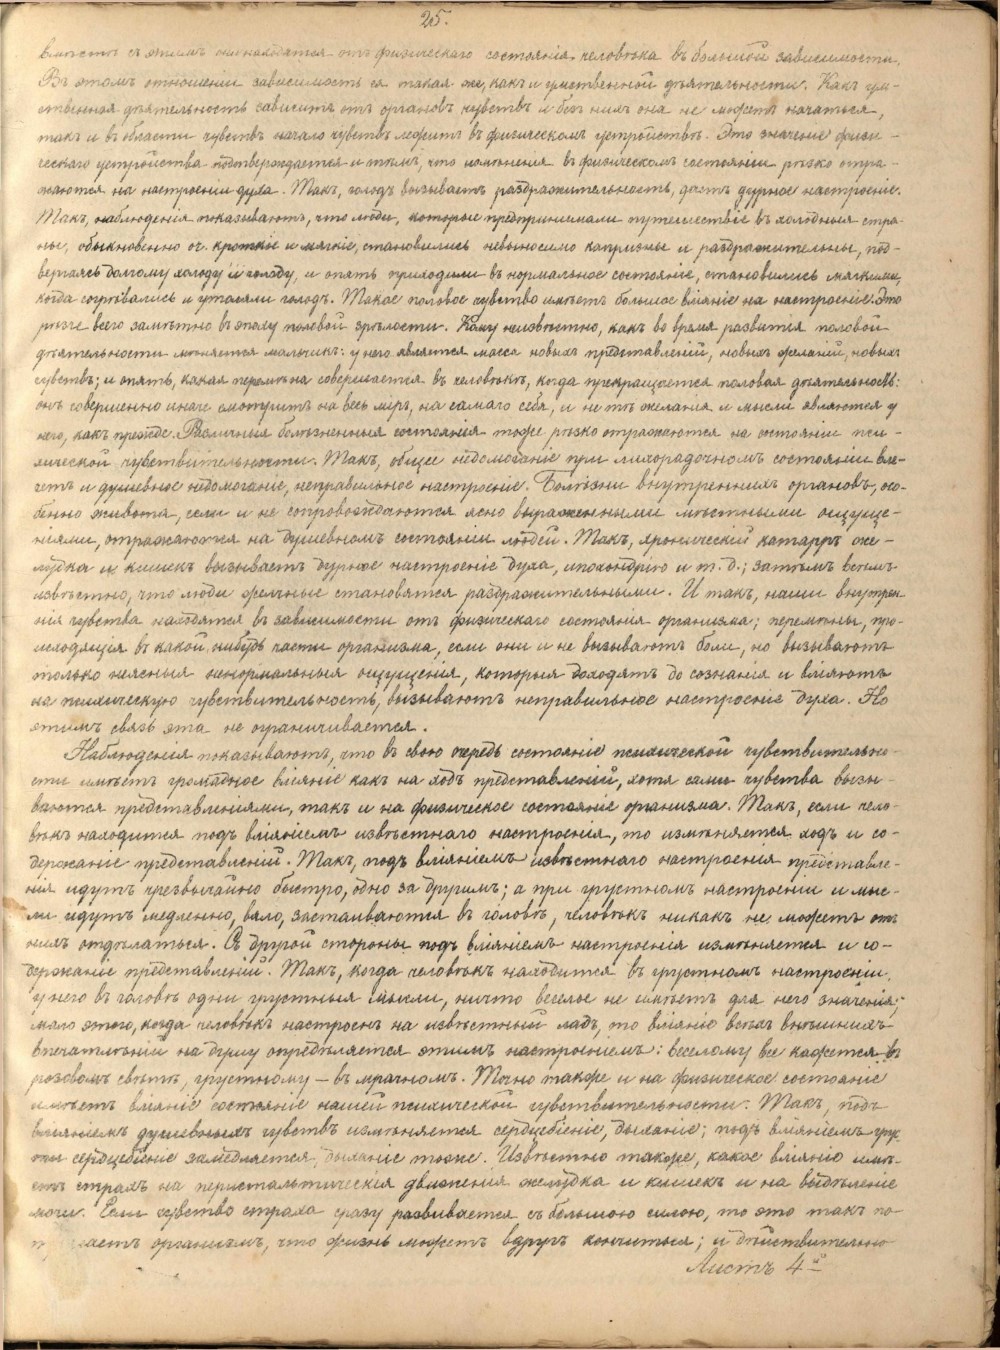 25.
вмѣстѣ съ этимъ они находятся отъ физическаго состоянія человѣка въ большой зависимости.
Въ этомъ отношеніи зависимость ея такая же, какъ и умственной дѣятельности. Какъ ум-
ственная дѣятельность зависитъ отъ органовъ чувствъ и безъ нихъ она не можетъ начаться,
такъ и въ области чувствъ начало чувствъ лежитъ въ физическомъ устройствѣ. Это значеніе физи-
ческаго устройства подтверждается и тѣмъ, что измѣненія въ физическомъ состояніи рѣзко отра-
жаются на настроеніи духа. Такъ, голодъ вызываетъ раздражительность, даетъ дурное настроеніе.
Такъ, наблюденія показываютъ, что люди, которые предпринимали путешествіе въ холодныя стра-
ны, обыкновенно оч. кроткіе и мягкіе, становились невыносимо капризны и раздражительны, под-
вергаясь долгому холоду и голоду, и опять приходили въ нормальное состояніе, становились мягкими,
когда согрѣвались и утоляли голодъ. Такое половое чувство имѣетъ большое вліяніе на настроеніе. Это
рѣзче всего замѣтно въ эпоху половой зрѣлости. Кому неизвѣстно, какъ во время развитія половой
дѣятельности мѣняется мальчикъ: у него является масса новыхъ представленій, новыхъ желаній, новыхъ
чувствъ; и опять, какая перемѣна совершается въ человѣкѣ, когда прекращается половая дѣятельность:
онъ совершенно иначе смотритъ на весь міръ, на самаго себя, и не тѣ желанія и мысли являются у
него, какъ прежде. Различныя болѣзненныя состоянія тоже рѣзко отражаются на состояніи пси-
хической чувствительности. Такъ, общее недомоганіе при лихорадочномъ состояніи вле-
четъ и душевное недомоганіе, неправильное настроеніе. Болѣзни внутреннихъ органовъ, осо-
бенно живота, если и не сопровождаются ясно выраженными мѣстными ощуще-
ніями, отражаются на душевномъ состояніи людей. Такъ, хроническій катарръ же-
лудка и кишекъ вызываетъ дурное настроеніе духа, ипохондрію и т. д.; затѣмъ всѣмъ
извѣстно, что люди желчные становятся раздражительными. И такъ, наши внутрен-
нія чувства находятся въ зависимости отъ физическаго состоянія организма; перемѣны, про-
исходящія въ какой нибудь части организма, если они и не вызываютъ боли, но вызываютъ
только неясныя ненормальныя ощущенія, которыя доходятъ до сознанія и вліяютъ
на психическую чувствительность, вызываютъ неправильное настроеніе духа. Но
этимъ связь эта не ограничивается.
Наблюденія показываютъ, что въ свою очередь состояніе психической чувствительно-
сти имѣетъ громадное вліяніе какъ на ходъ представленій, хотя сами чувства вызы-
ваются представленіями, такъ и на физическое состояніе организма. Такъ, если чело-
вѣкъ находится подъ вліяніемъ извѣстнаго настроенія, то измѣняется ходъ и со-
держаніе представленій. Такъ, подъ вліяніемъ извѣстнаго настроенія представле-
нія идутъ чрезвычайно быстро, одно за другимъ; а при грустномъ настроеніи и мыс-
ли идутъ медленно, вяло, застаиваются въ головѣ, человѣкъ никакъ не можетъ отъ
нихъ отдѣлаться. Съ другой стороны подъ вліяніемъ настроенія измѣняется и со-
держаніе представленій. Такъ, когда человѣкъ находится въ грустномъ настроеніи,
у него въ головѣ одни грустныя мысли, ничто веселое не имѣетъ для него значенія;
мало этого, когда человѣкъ настроенъ на извѣстный ладъ, то вліяніе всѣхъ внѣшнихъ
впечатлѣній на душу опредѣляется этимъ настроеніемъ: веселому все кажется въ
розовомъ свѣтѣ, грустному — въ мрачномъ. Точно также и на физическое состояніе
имѣетъ вліяніе состояніе нашей психической чувствительности. Такъ, подъ
вліяніемъ душевныхъ чувствъ измѣняется сердцебіеніе, дыханіе; подъ вліяніемъ грус
ти сердцебіеніе замедляется, дыханіе тоже. Извѣстно также, какое вліяніе имѣ-
етъ страхъ на перистальтическія движенія желудка и кишекъ и на выдѣленіе
мочи. Если чувство страха сразу развивается съ большою силою, то это такъ по-
организмъ, что жизнь можетъ вдругъ кончиться; и дѣйствительно
Листъ 4й